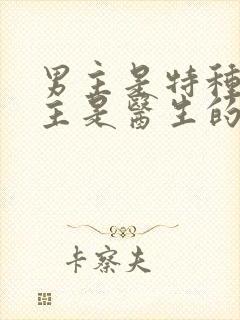 男主是特種
主是醫生的
卡察夫